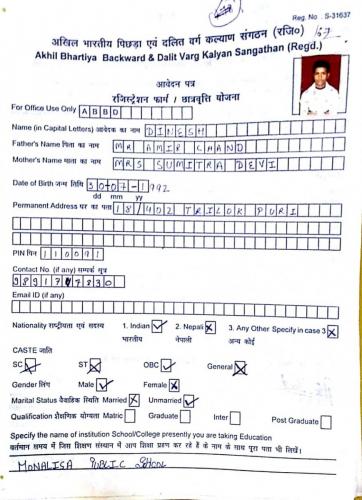 Reg. No. S-31637
अखिल भारतीय पिछड़ा एवं दलित वर्ग कल्याण संगठन (रजि०)
Akhil Bhartiya Backward & Dalit Varg Kalyan Sangathan (Regd.)
आवेदन पत्र
रजिस्ट्रेशन फार्म / छात्रवृत्ति योजना
For Office Use Only ABBD
Name (in Capital Letters) आवेदक का नाम DINESH
Father's Name पिता का नाम MR AMIR CHAND
Mother's Name माता का नाम MRS SUMITRA DEVI
Date of Birth जन्म तिथि 30-07-1992
dd mm yy
Permanent Address घर का पता 18/402 TRILOK PURI
PIN पिन 110091
Contact No. (if any) सम्पर्क सूत्र
Email ID (if any)
Nationality राष्ट्रीयता एवं सदस्य 1. Indian 2. Nepali 3. Any Other Specify in case 3
भारतीय नेपाली अन्य कोई
CASTE जाति
SC ST OBC General
Gender लिंग Male Female
Marital Status वैवाहिक स्थिति Married Unmarried
Qualification शैक्षणिक योग्यता Matric Graduate Inter Post Graduate
Specify the name of institution School/College presently you are taking Education
वर्तमान समय में जिस शिक्षण संस्थान में आप शिक्षा ग्रहण कर रहे हैं के नाम के साथ पूरा पता भी लिखें।
MONALISA PUBLIC SCHOOL